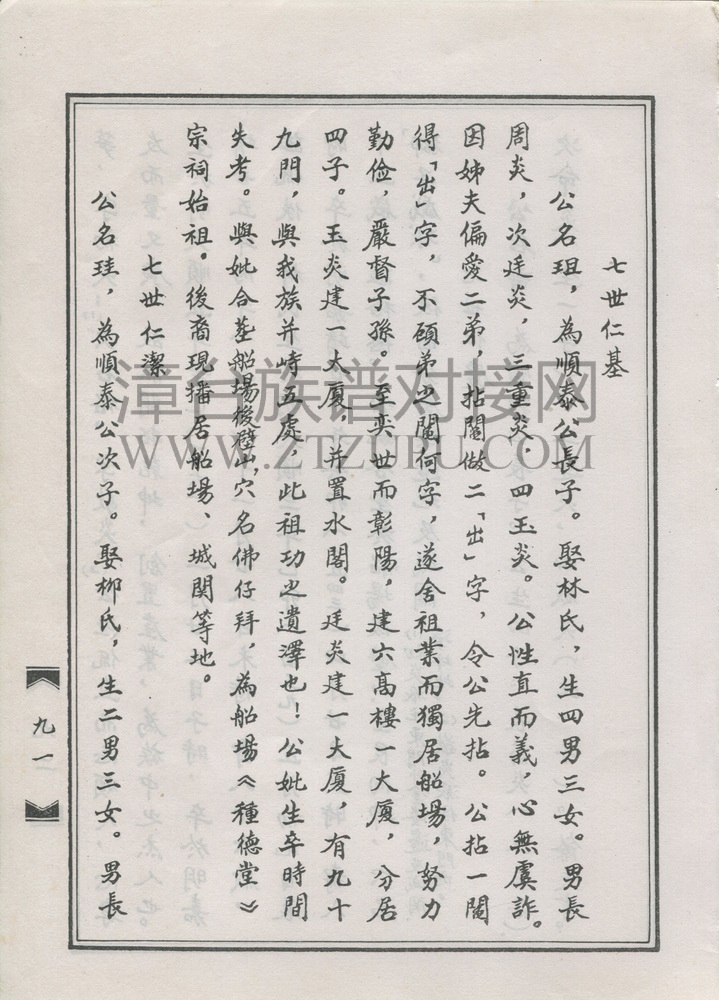 七世仁基
公名珇，為順泰公長子。娶林氏，生四男三女。男長
周炎，次廷炎，三重炎，四玉炎。公性直而義，心無虞詐。
因姊夫偏愛二弟，拈鬮做二「出」字，令公先拈。公拈一鬮
得「出」字，不顧弟之鬮何字，遂舍祖業而獨居船場，努力
勤俭，嚴督子孫。至奕世而彰陽，建六高樓一大厦，分居
四子。玉炎建一大厦，并置水閣。廷炎建一大厦，有九十
九門，與我族并峙五處，此祖功之遺澤也！公妣生卒時間
失考。與妣合葬船場後壁山，穴名佛仔拜，為船場《種德堂》
宗祠始祖。後裔現播居船場、城関等地。
七世仁潔
公名珪，為順泰公次子。娶柳氏，生二男三女。男長
九一
漳台族谱对接网
WWW.ZTZUPU.COM